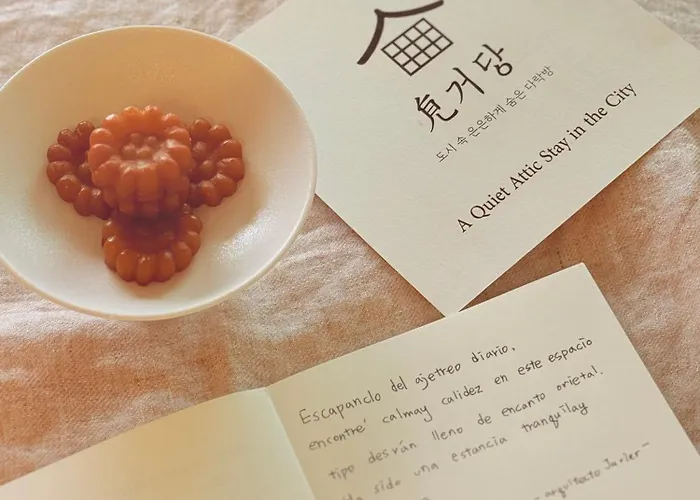 거당
도시 속 은은하게 숨은 다락방
A Quiet Attic Stay in the City
Escapanclo del ajetreo diario,
encontre' calmay calidez en este espacio
tipo desván lleno de encanto orietal.
sido una estancia tranquilay
arquitecto Javier-